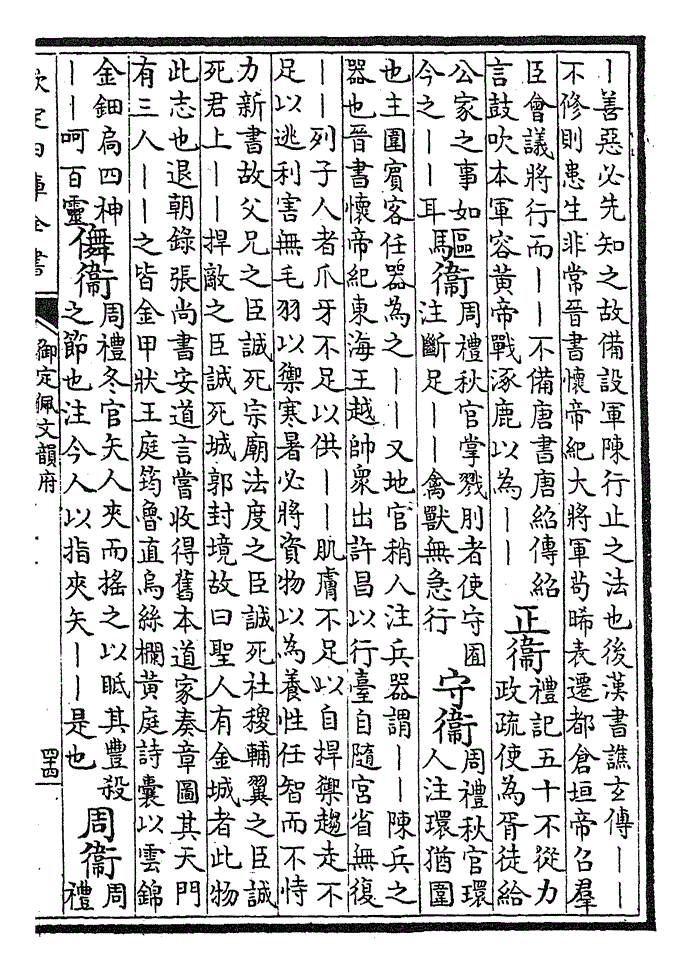 ｜善惡必先知之故備設軍陳行止之法也後漢書譙玄傳｜｜
不修則患生非常晉書懷帝紀大將軍苟晞表遷都倉垣帝召羣
臣會議將行而｜｜不備唐書唐紹傳紹
言鼓吹本軍容黃帝戰涿鹿以為｜｜
正衞
禮記五十不從力
政疏使為胥徒給
公家之事如
今之｜｜耳
驅衞
周禮秋官掌戮刖者使守囿
注斷足｜｜禽獸無急行
守衞
周禮秋官環
人注環猶圍
也主圍賓客任器為之｜｜又地官稍人注兵器謂｜｜陳兵之
器也晉書懷帝紀東海王越帥衆出許昌以行臺自隨宮省無復
｜｜列子人者爪牙不足以供｜｜肌膚不足以自捍禦趨走不
足以逃利害無毛羽以禦寒暑必將資物以為養性任智而不恃
力新書故父兄之臣誠死宗廟法度之臣誠死社稷輔翼之臣誠
死君上｜｜捍敵之臣誠死城郭封境故曰聖人有金城者此物
此志也退朝錄張尚書安道言嘗收得舊本道家奏章圖其天門
有三人｜｜之皆金甲狀王庭筠魯直烏絲欄黃庭詩囊以雲錦
金鈿扃四神
｜｜呵百靈
儛衞
周禮冬官矢人夾而搖之以眡其豐殺
之節也注今人以指夾矢｜｜是也
周衞
周
禮
欽定四庫全書
御定佩文韻府
四十四